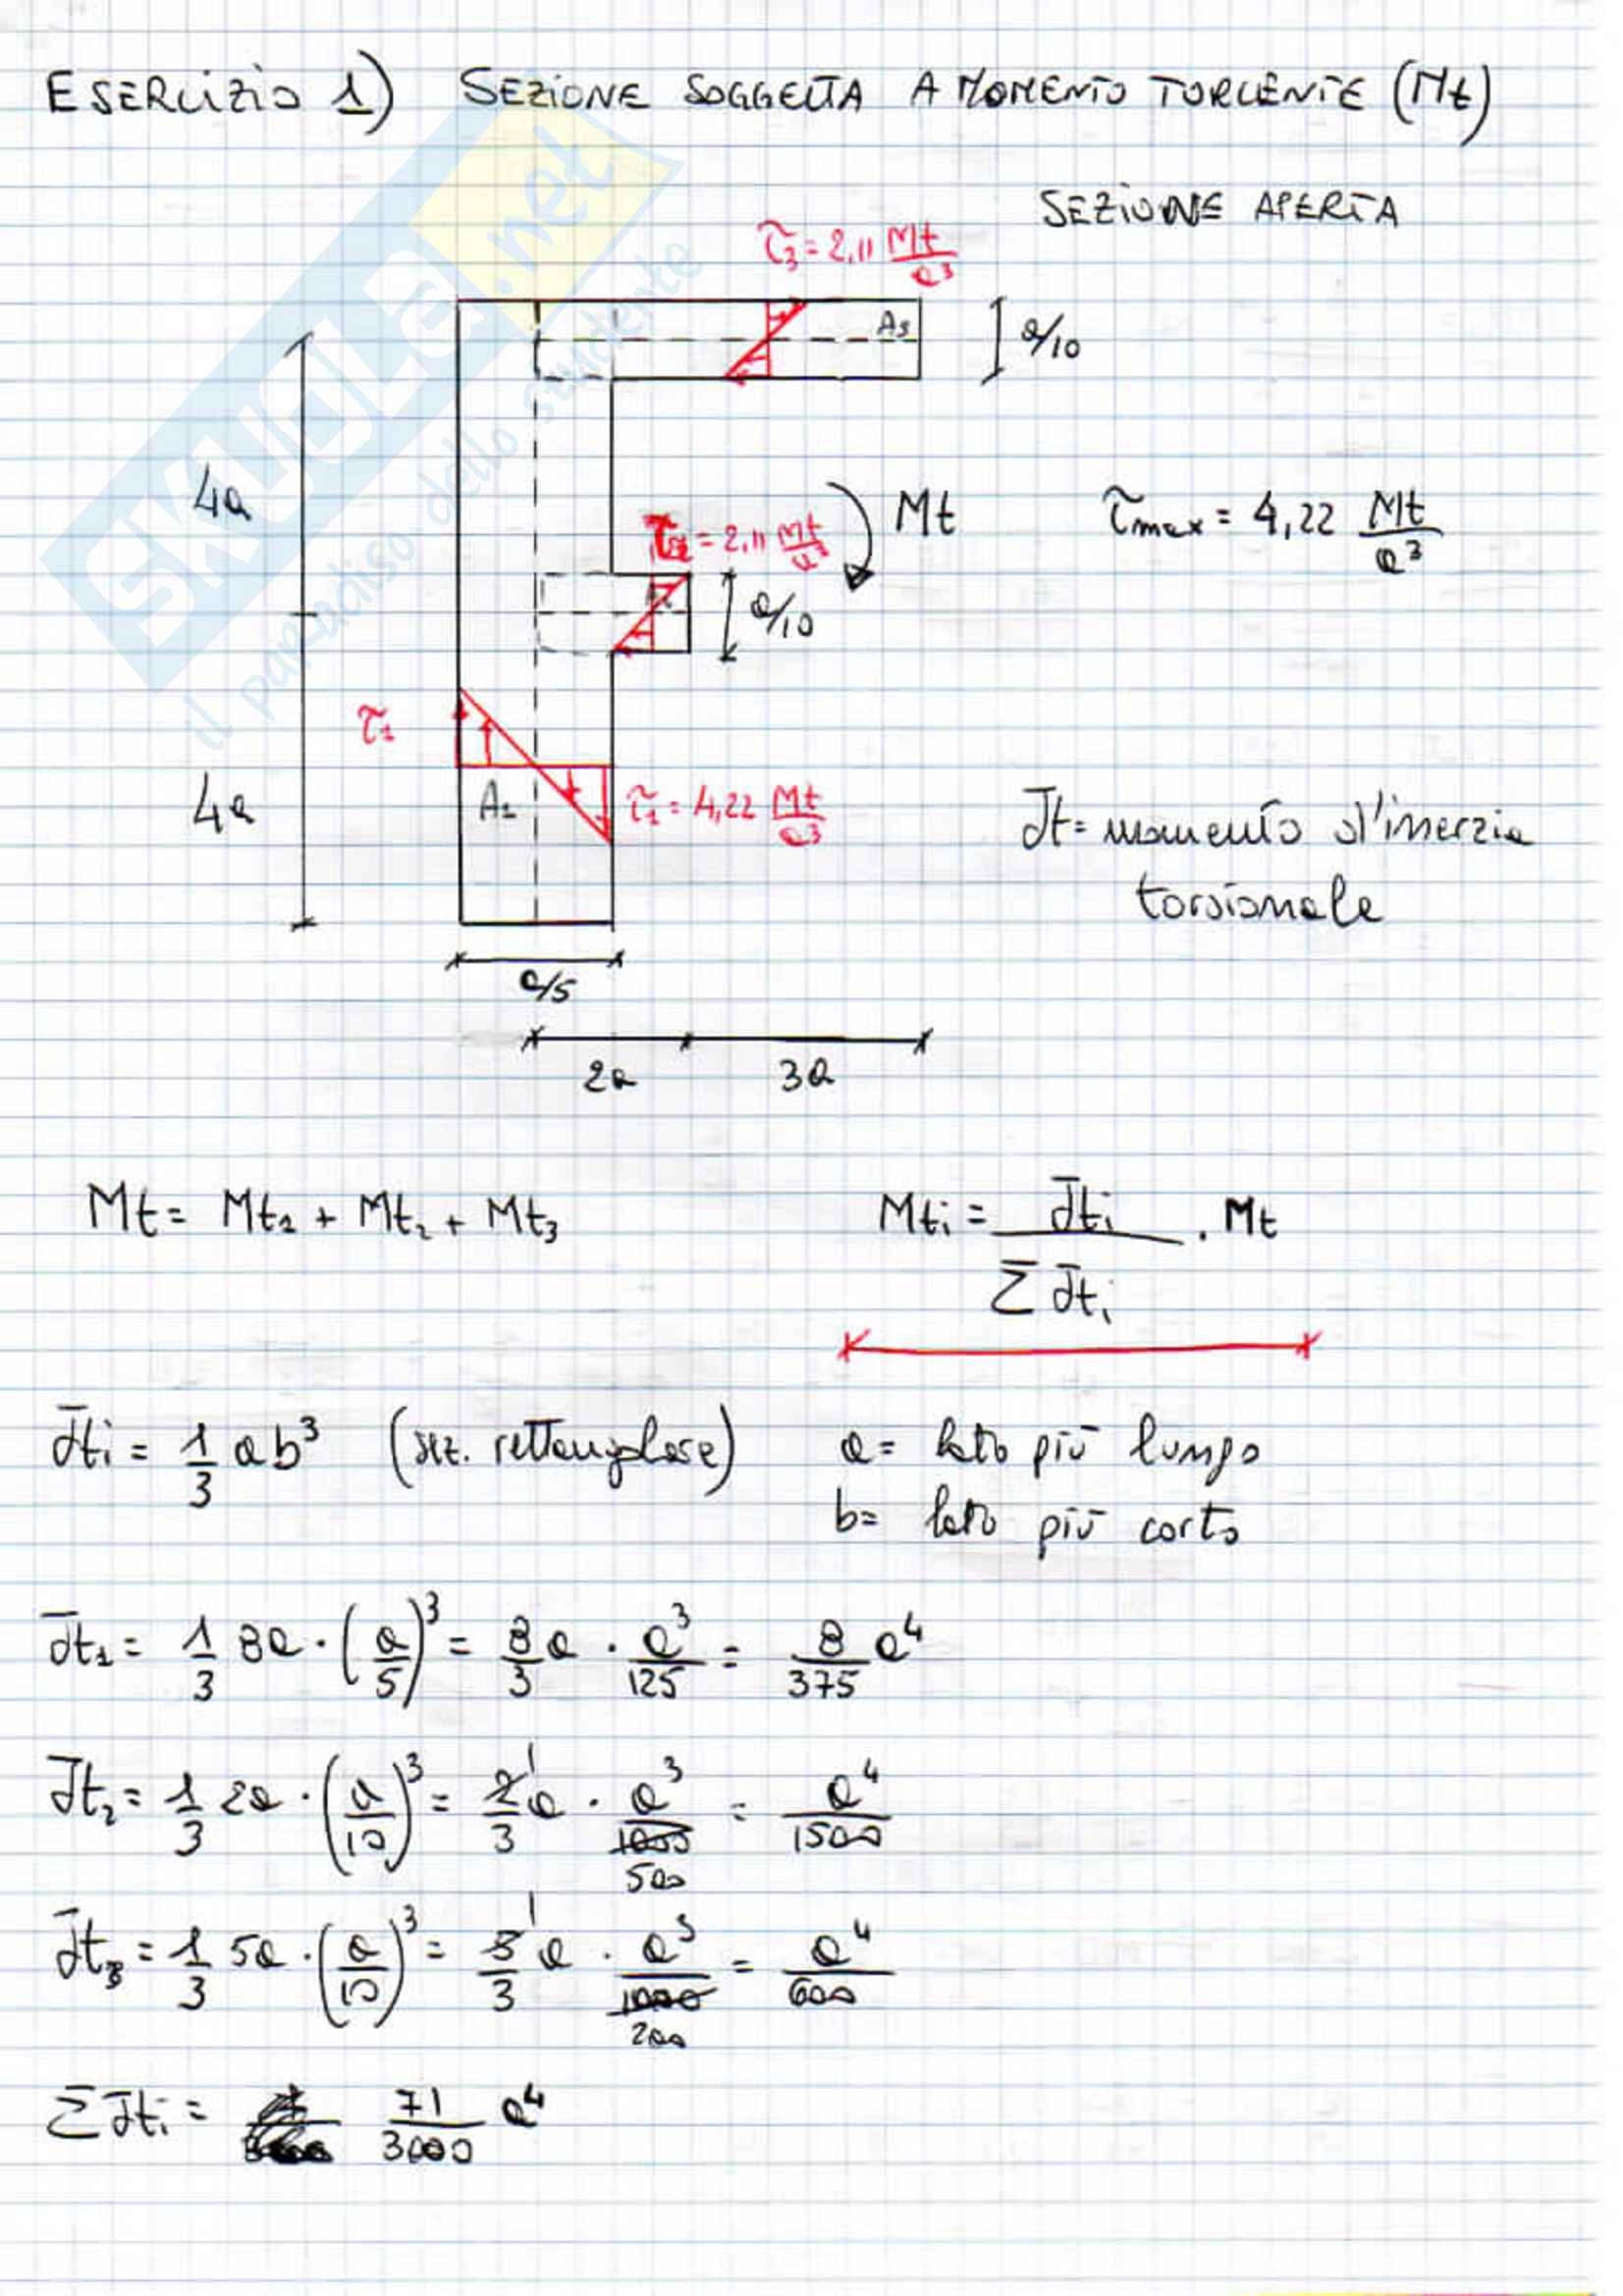 ESERCIZIO 1) SEZIONE SOGGETTA A MOMENTO TORCENTE (Mt)
SEZIONE APERTA
τ3 = 2,11 Mt/a³
A3
a/10
4a
τ2 = 2,11 Mt/a³
Mt
τmax = 4,22 Mt/a³
a/10
τ1
4a
A1
τ1 = 4,22 Mt/a³
Jt = momento d'inerzia
torsionale
a/5
2a 3a
Mt = Mt1 + Mt2 + Mt3
Mti = Jti/ΣJti · Mt
Jti = 1/3 ab³ (sez. rettangolare)
a = lato più lungo
b = lato più corto
Jt1 = 1/3 8a · (a/5)³ = 8/3 a · a³/125 = 8/375 a⁴
Jt2 = 1/3 2a · (a/10)³ = 2/3 1 a · a³/1000 500 = a⁴/1500
Jt3 = 1/3 5a · (a/10)³ = 5/3 1 a · a³/1000 200 = a⁴/600
ΣJti = 71/3000 a⁴
SKUOLA.net
il paradiso dello studente